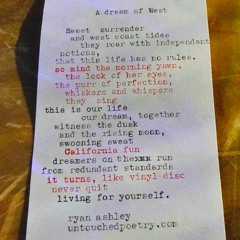 A dream of West
Sweet surrender
and west coast tides
they roar with independant
notions,
that this life has no rules.
so mind the morning yawn,
the look of her eyes,
the purr of perfection,
whiskers and whispers
they sing
this is our life
our dream, together
witness the dusk
and the rising moon,
swooning sweat
California fun
dreamers on thexxx run
from redundant standards
it turns, like vinyl disc
never quit
living for yourself.
ryan ashley
untouchedpoetry.com